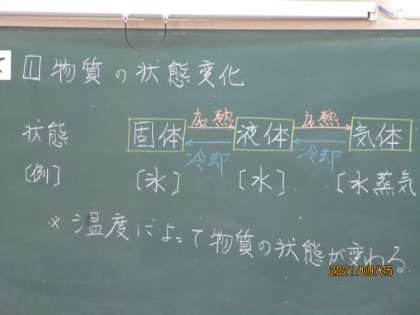 1 物質の状態変化
加熱 加熱
状態 固体 液体 気体
冷却 冷却
[例] [氷] [水] [水蒸気
※温度によって物質の状態が変わる
2021/09/25